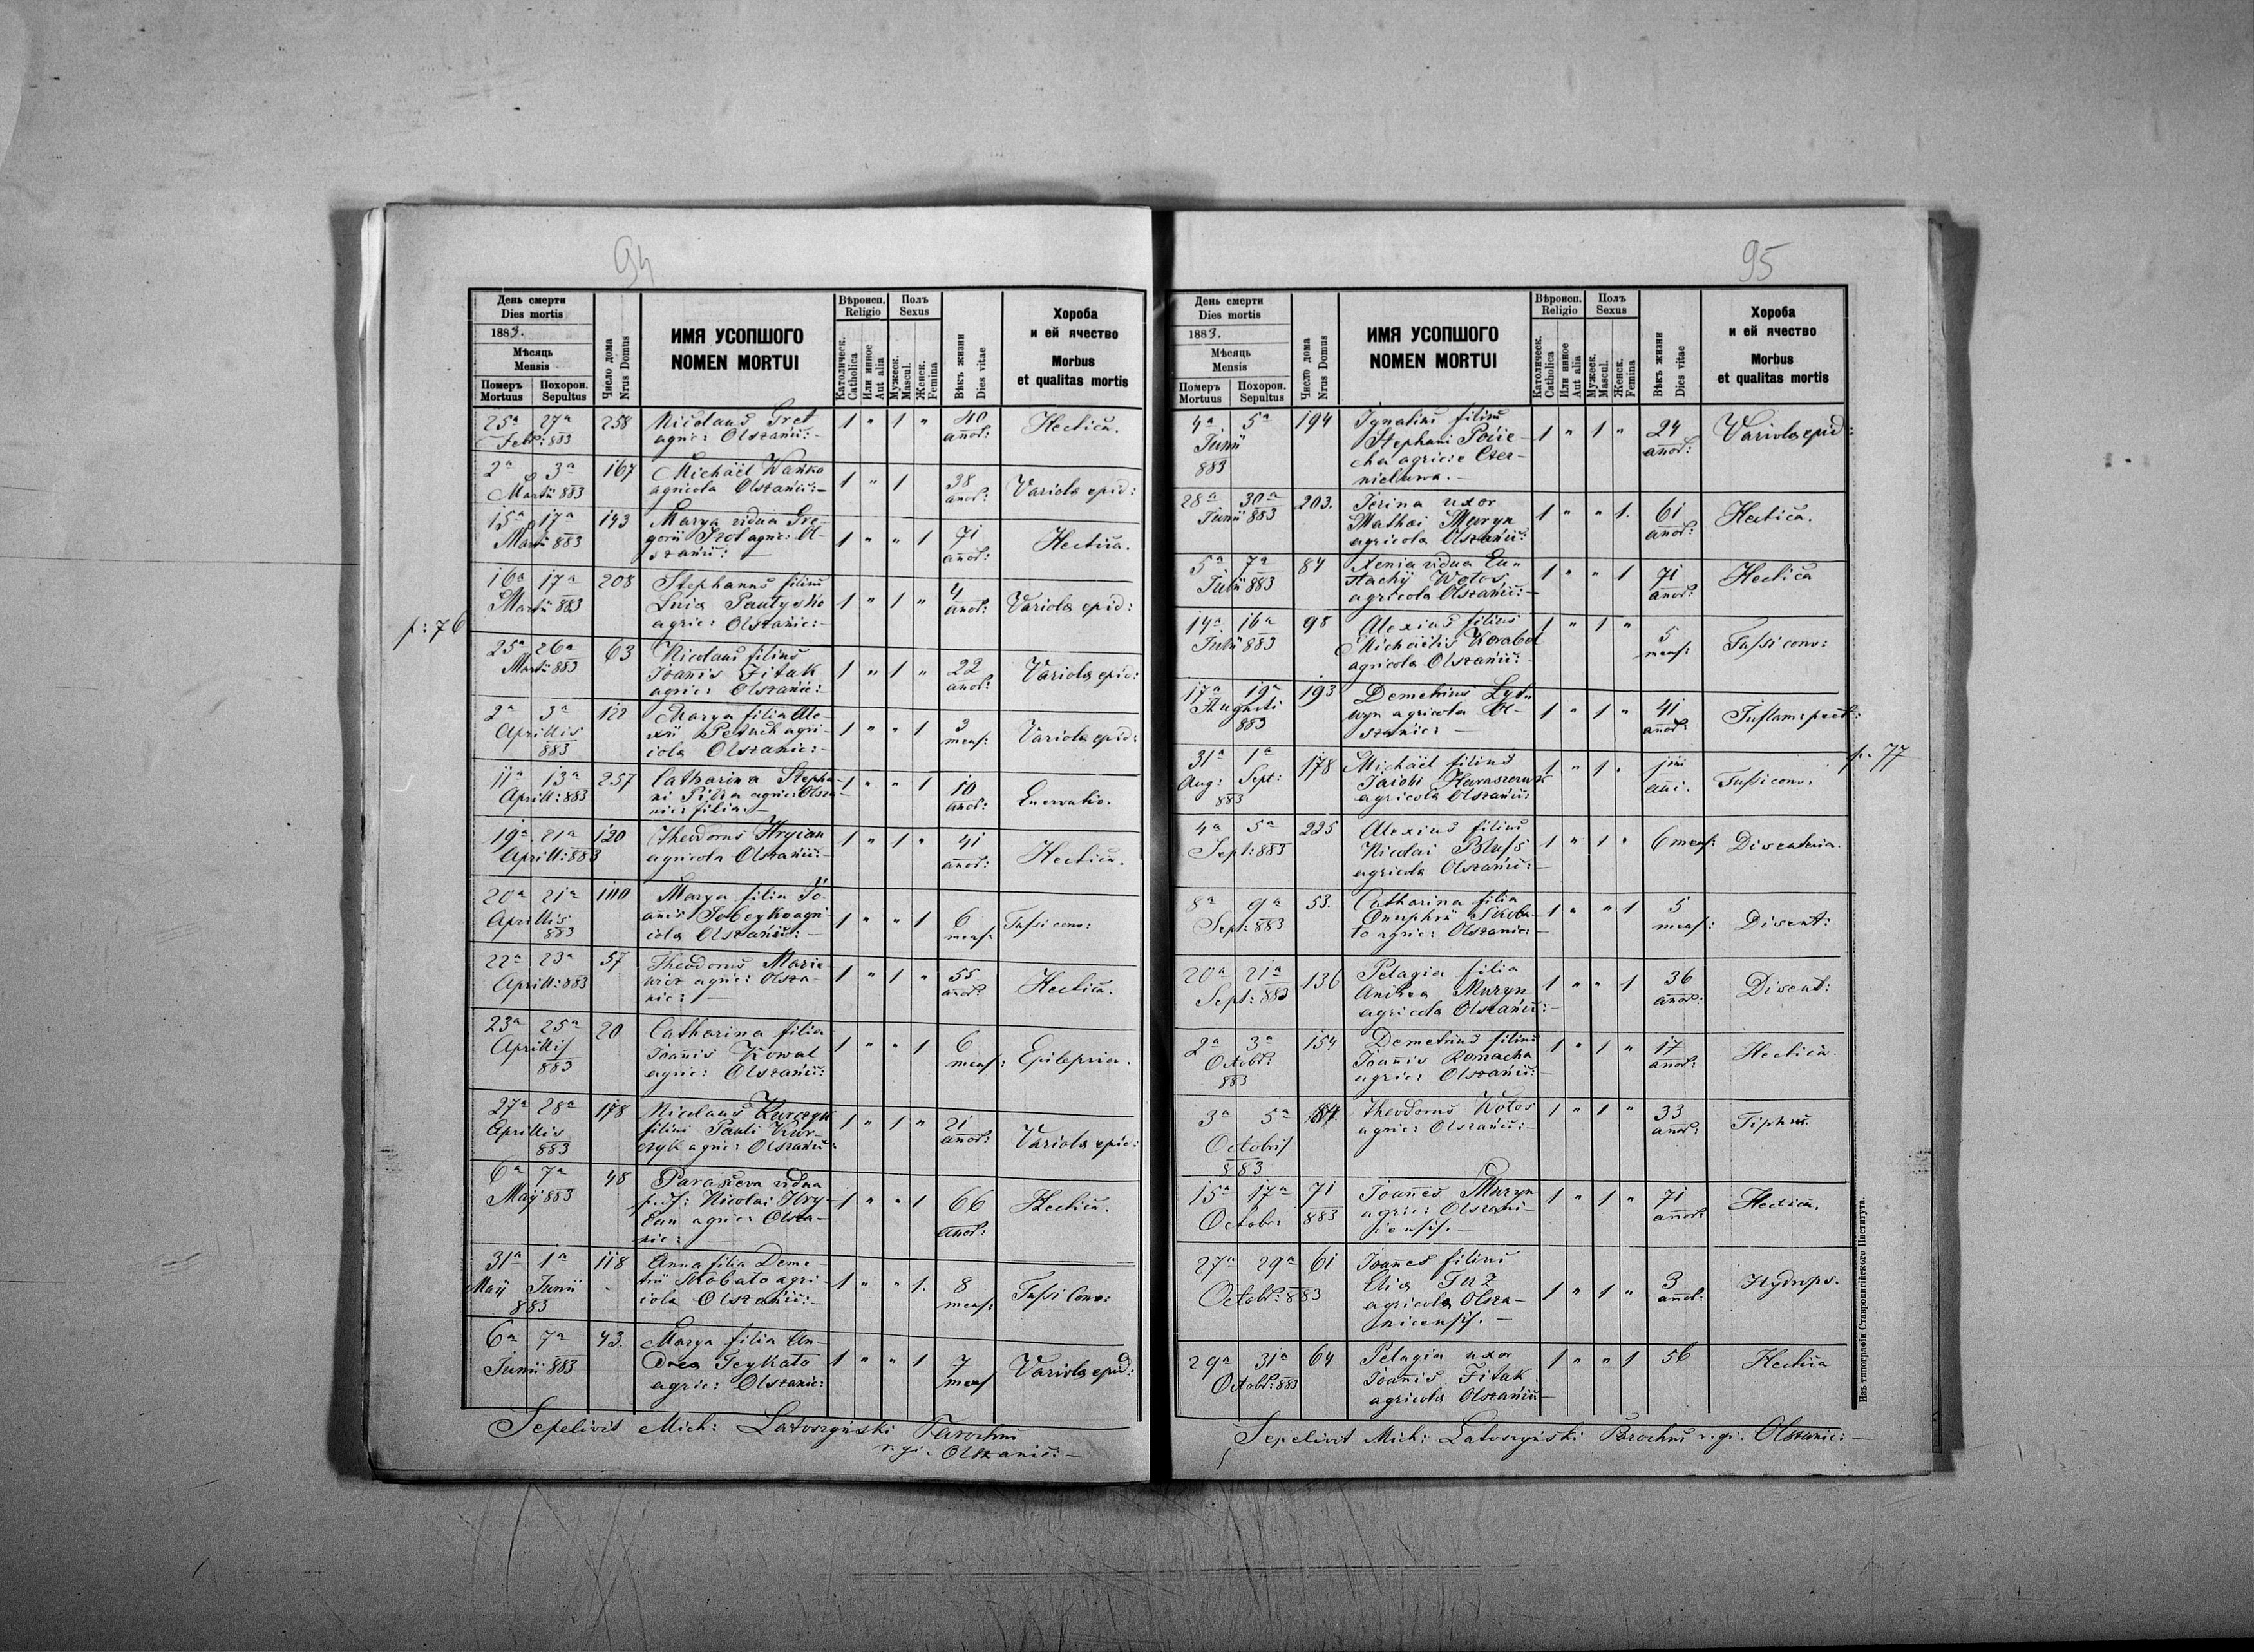 94
День смерти
Dies mortis
1883.
Мѣсяць
Mensis
Померъ Похорон.
Mortuus Sepultus
Число дома
Nrus Domus
ИМЯ УСОПШОГО
NOMEN MORTUI
Вѣроисп.
Religio
Католическ.
Catholica
Или инное
Aut alia
Полъ
Sexus
Мужеск.
Mascul.
Женск.
Femina
Вѣкъ жизни
Dies vitae
Хороба
и ей ячество
Morbus
et qualitas mortis
25ª 27ª 258 Nicolaus Gret 1 " 1 " 40 Hectica.
Febr: 883 agric: Olszanic:- anor:
2ª 3ª 167 Michaël Wańko 1 " 1 38 Variola epid:
Martii 883 agricola Olszanic:- anor:
15ª 17ª 143 Marya vidua Gre-
Martii 883 gorii Szot agric: Ol- 1 " " 1 71 Hectica.
szanic: - anor:
16ª 17ª 208 Stephanus filius
Martii 883 Pautysko 1 " 1 " 4 Variola epid:
agric: Olszanic:- anor:
p: 76
25ª 26ª 63 Nicolaus filius
Martii 883 Joanis Fitak 1 " 1 " 22 Variola epid:
agric: Olszanic:- anor:
2ª 3ª 122 Marya filia Ale-
Aprillis xii Petuch agri- 1 " " 1 3 Variola epid:
883 cola Olszanic:- mens:
11ª 13ª 257 Catharina Stepha- 1 " " 1 10
Aprill: 883 ni Pilia agric: Olsza- anor: Enervatio.
nic: filia.
19ª 21ª 120 Theodorus Hrycan 1 " 1 " 41
Aprill: 883 agricola Olszanic:- anor: Hectica.
20ª 21ª 110 Marya filia Jo-
Aprillis anis agri- 1 " " 1 6 Tussi conv:
883 cola Olszanic:- mens:
22ª 23ª 57 Theodorus Marce- 1 " 1 " 55
Aprill: 883 wicz agric: Olsza- anor: Hectica.
nic: -
23ª 25ª 20 Catharina filia
Aprillis Joannis Kowal 1 " " 1 6 Epilepsia.
883 agric: Olszanic: mens:
27ª 28ª 178 Nicolaus Kurczyk
Aprillis filius Pauli Kur- 1 " 1 " 21
883 czyk agric: Olszanic: anor: Variola epid:
6ª 7ª 48 Parasceva vidua
Maÿ 883 Nicolai Hry- 1 " " 1 66 Hectica.
can agric: Olsza- anor:
nic: -
31ª 1ª 118 Anna filia Deme-
Maÿ Junii trii Skobało agri- 1 " " 1. 8 Tussi Conv:
883 cola Olszanic:- mens:
6ª 7ª 43. Marya filia An-
Junii 883 drea Tcykało 1 " " 1 7 Variola epid:
agric: Olszanic: mens
Sepelivit Mich: Latoszyński Parochus
r. gr. Olszanic:-
95
День смерти
Dies mortis
1883.
Мѣсяць
Mensis
Померъ Похорон.
Mortuus Sepultus
Число дома
Nrus Domus
ИМЯ УСОПШОГО
NOMEN MORTUI
Вѣроисп.
Religio
Католическ.
Catholica
Или инное
Aut alia
Полъ
Sexus
Мужеск.
Mascul.
Женск.
Femina
Вѣкъ жизни
Dies vitae
Хороба
и ей ячество
Morbus
et qualitas mortis
4ª 5ª 194 Ignatius filius
Junii Stephani Pocie- 1 " 1 " 24 Variola epid:
883 cha agric: Czer- anor:
nichowa.-
28ª 30ª 203. Jerina uxor
Junii 883 Mathæi Muryn 1 " " 1. 61 Hectica.
agricola Olszanic: anor:
5ª 7ª 84 Xenia vidua Eu-
Julii 883 stachÿ Wołos 1 " " 1 71 Hectica
agricola Olszanic:- anor:
14ª 16ª 98 Alexius filius 1 " 1 "
Julii 883 Michäelis Korabel 5 Tussi conv:
agricola Olszanic:- mens:
17ª 19ª 193 Demetrius
Augusti agricola Ol- 1 " 1 " 41 Inflam: pect:
883 szanic: - anor:
p. 77
31ª 1ª 178 Michäel filius 1 " 1 .
Aug: Sept: Jacobi Haraszczuk ani. Tussi conv.
883 agricola Olszanic:
4ª 5ª 225 Alexius filius
Sept: 883 Nicolai Bluss 1 " 1 " 6 mens: Disenteria.
agricola Olszanic:-
8ª 9ª 53. Catharina filia
Sept: 883 Onuphrii Skoba- 1 " " 1 5 Disent:
ło agric: Olszanic: mens:
20ª 21ª 136 Pelagia filia
Sept: 883 Andrea Muryn 1 " " 1 36 Disent:
agricola Olszanic:- anor:
2ª 3ª 154 Demetrius filius
Octobr: Joannis Romacha 1 " 1 " 17 Hectica.
883 agric: Olszanic:- anor:
3ª 5ª 84. Theodorus Wołos 1 " 1 " 33 Tiphus.
Octobris agric: Olszanic:- anor:
883
15ª 17ª 71 Joannes Muryn 1 " 1 " 71 Hectica.
Octobr: 883 agric: Olszani- anor:
censis.-
27ª 29ª 61 Joannes filius
Octobr: 883 Eliæ Tuz 1 " 1 " 3 Hydrops.
agricola Olsza- anor:
nicensis.-
29ª 31ª 64 Pelagia uxor 1 " " 1 56 Hectica
Octobr: 883 Joannis Fitak
agricola Olszanic:-
Sepelivit Mich: Latoszyński Parochus r. gr. Olszanic:-
Изъ типографіи Ставропигійского Института.